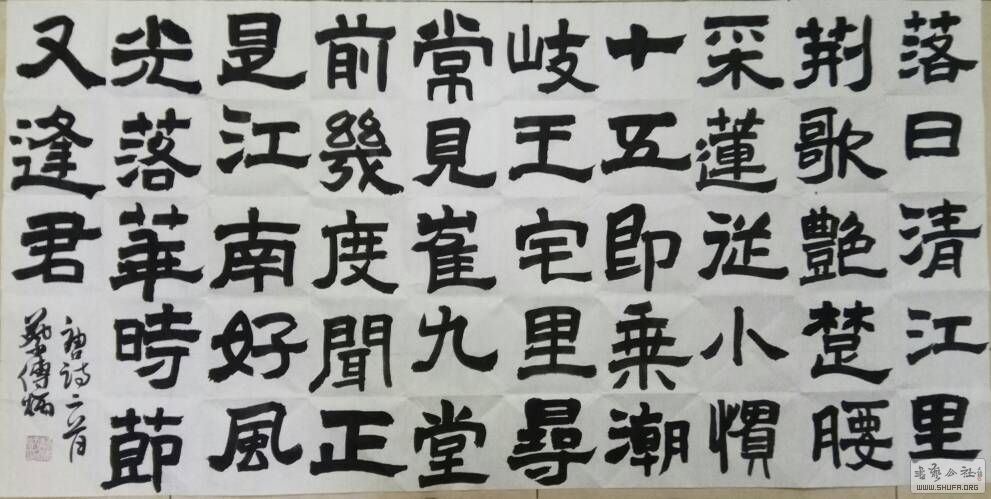 落日清江里
荆歌艷楚腰
采蓮從小慣
十五即乘潮
岐王宅里尋
常見崔九堂
前幾度聞正
是江南好風
光落華時節
又逢君
唐詩二首
书艺公社
WWW.SHUFA.ORG